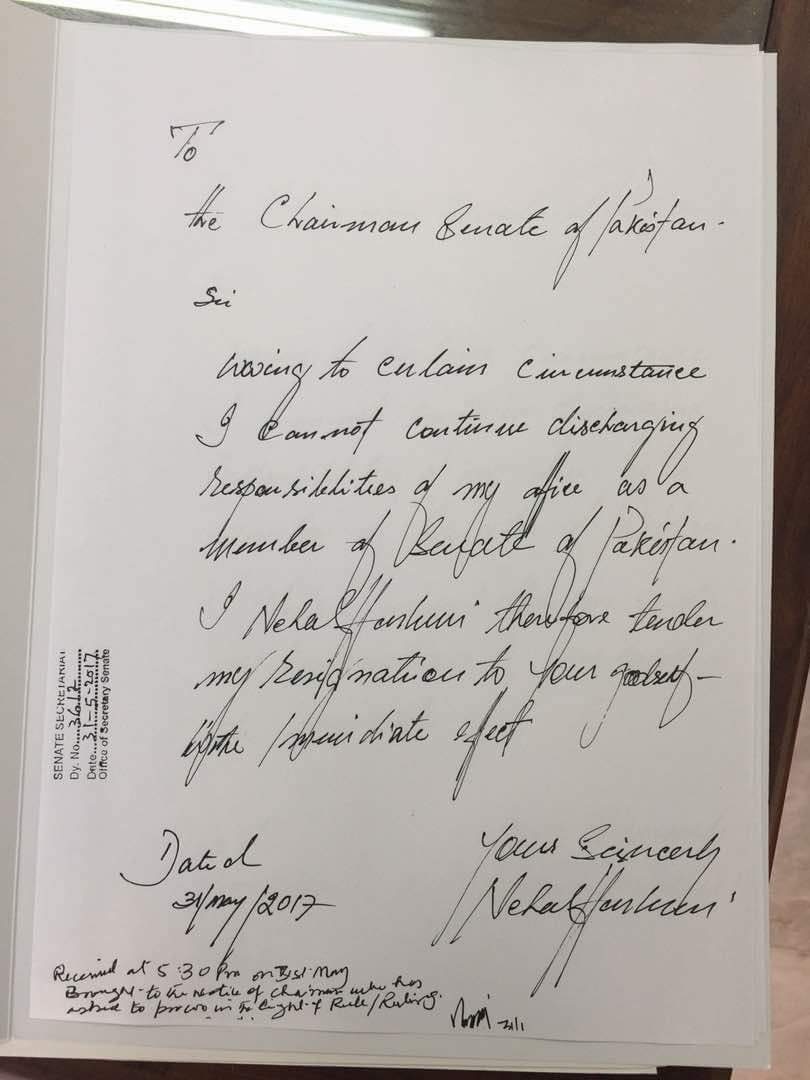 To
the Chairman Senate of Pakistan.
Sir
Owing to certain circumstance
I cannot continue discharging
responsibilities of my office as a
member of Senate of Pakistan.
I Nehal Hashmi therefore tender
my resignation to your goodself –
with immediate effect
Dated
31/may/2017
Yours Scincerly
Nehal Hashmi
Received at 5:30 Pm on 31st May
Brought to the notice of Chairman who has
asked to process in the light of Rule/Ruling.
SENATE SECRETARIAT
Dy. No. 3612
Date 31-5-2017
Office of Secretary Senate